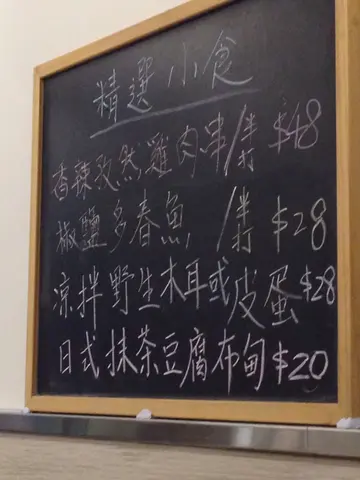 精選小食
香辣孜然雞肉串/半打 $48
椒鹽多春魚/半打 $28
凉拌野生木耳或皮蛋 $28
日式抹茶豆腐布甸 $20